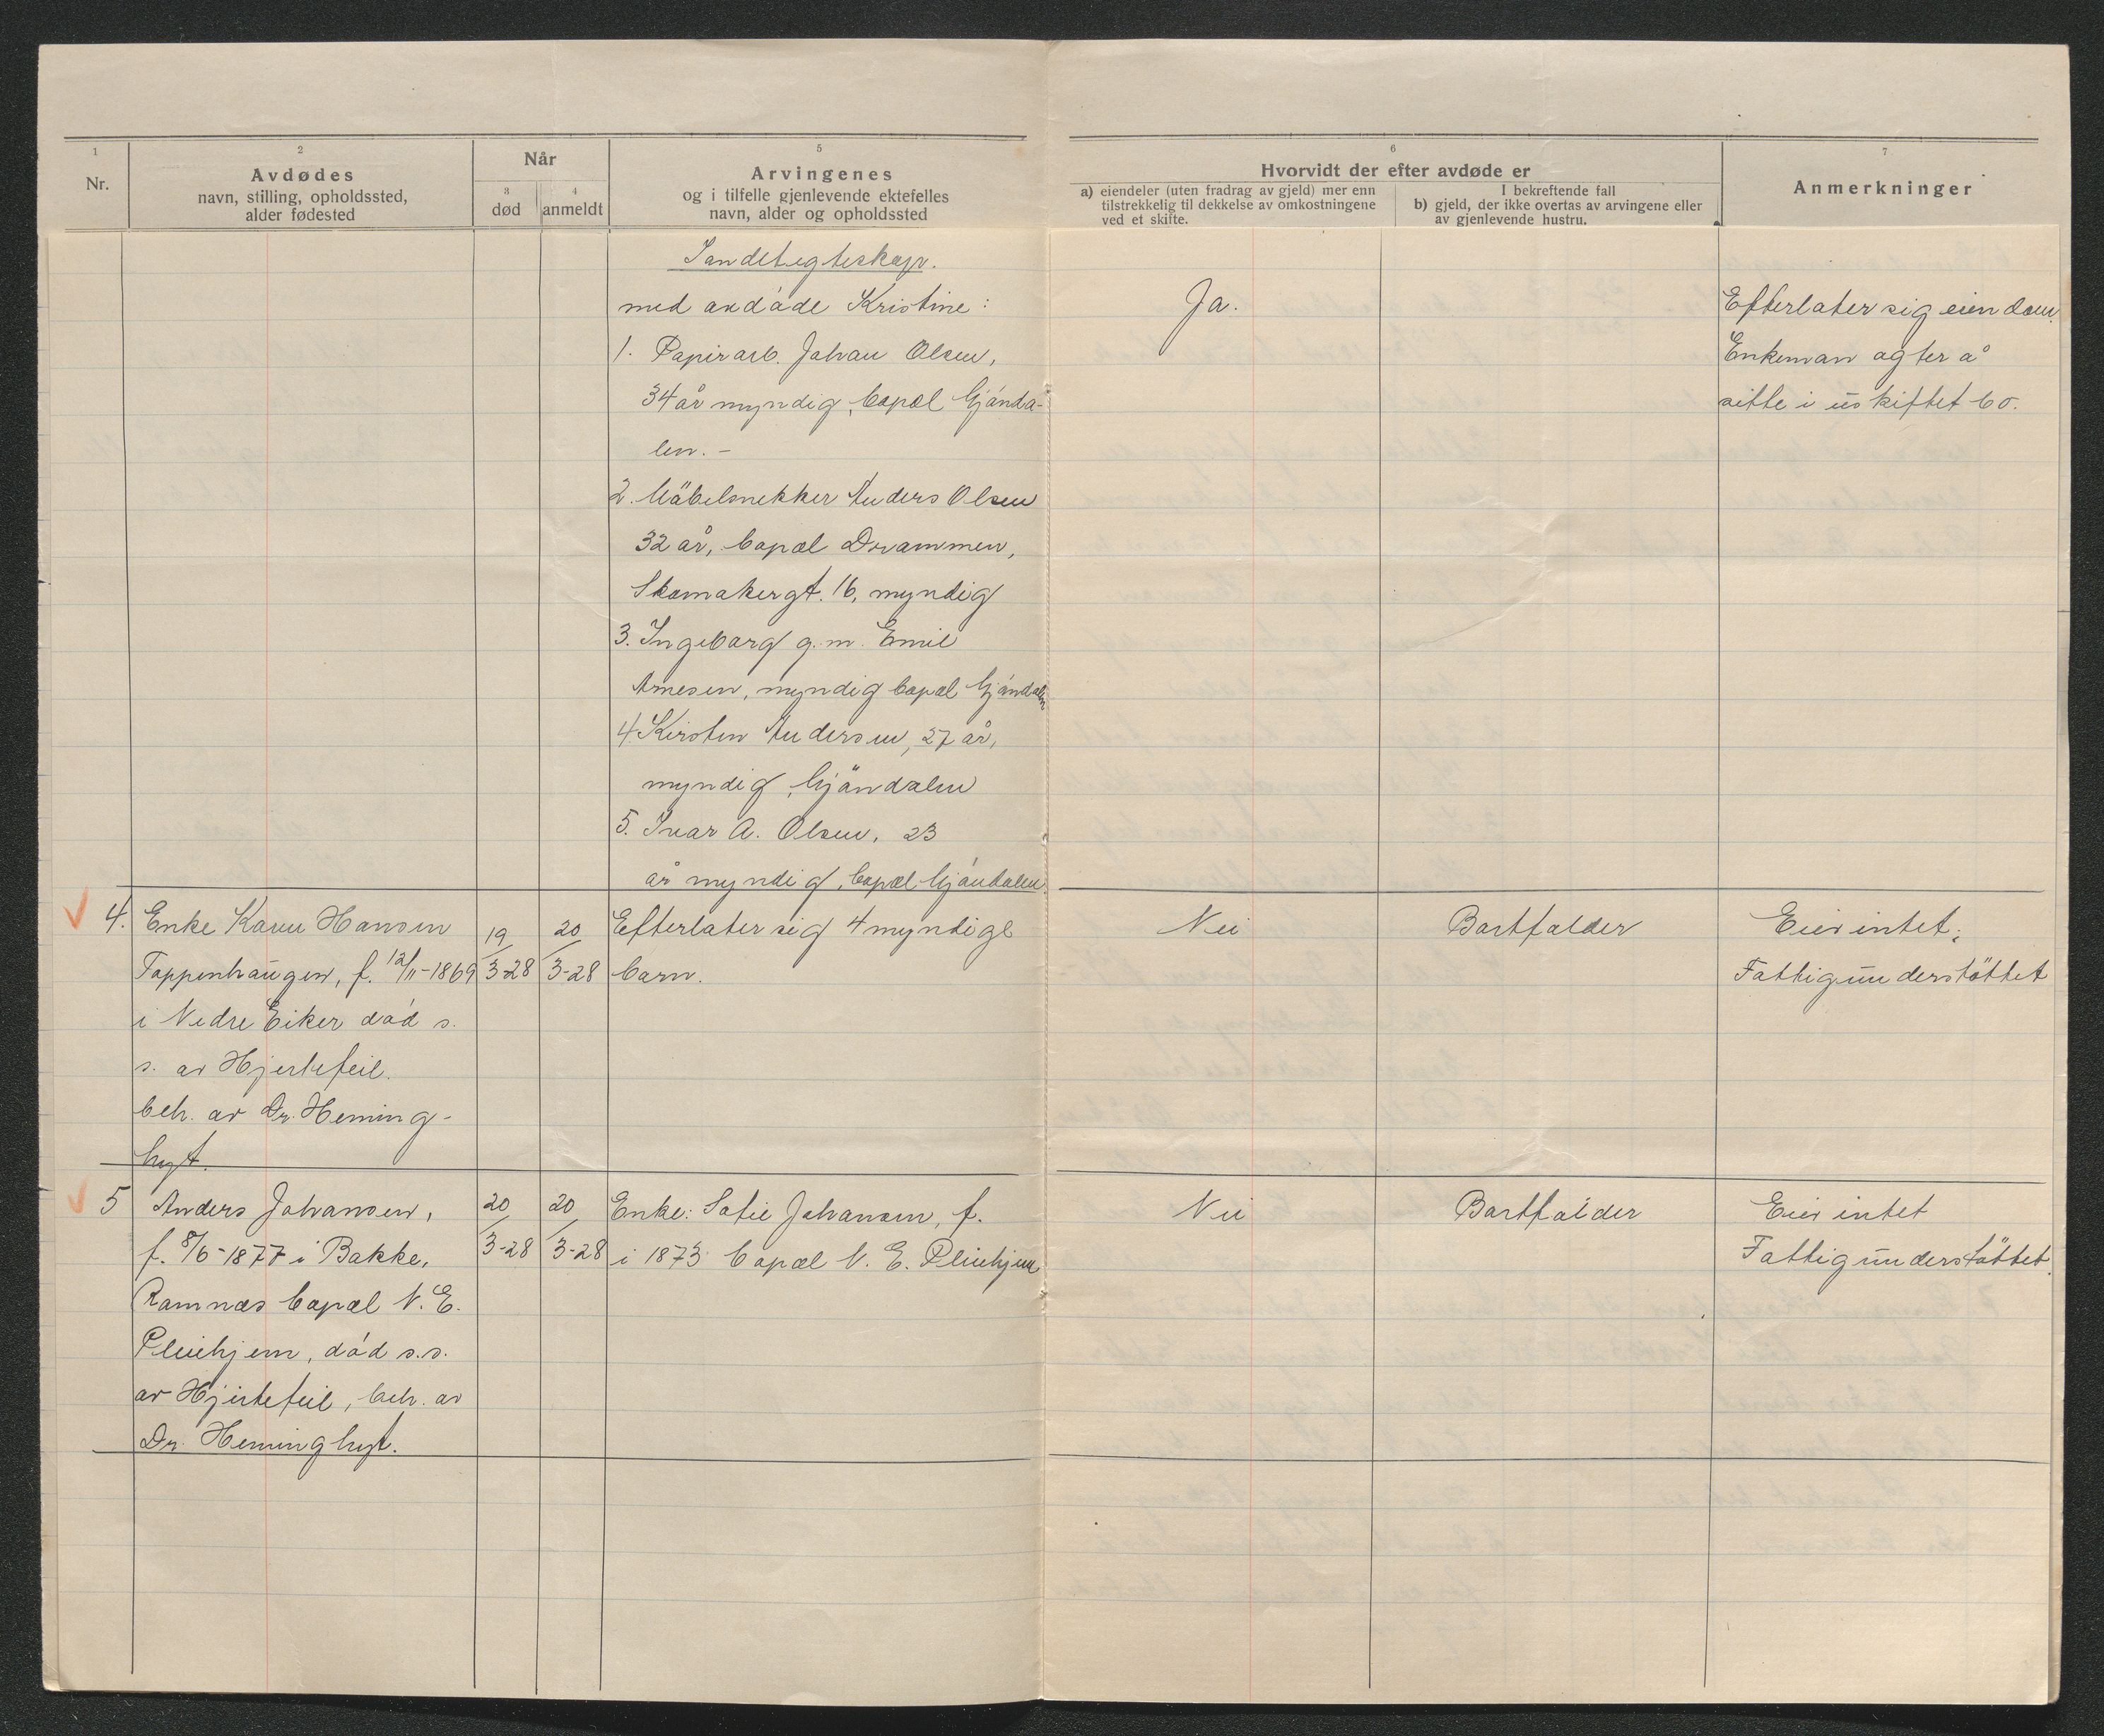 1
Nr.
2
Avdødes
navn, stilling, opholdssted,
alder fødested
Når
3
død
4
anmeldt
5
Arvingenes
og i tilfelle gjenlevende ektefelles
navn, alder og opholdssted
6
Hvorvidt der efter avdøde er
a) eiendeler (uten fradrag av gjeld) mer enn
tilstrekkelig til dekkelse av omkostningene
ved et skifte.
I bekreftende fall
b) gjeld, der ikke overtas av arvingene eller
av gjenlevende hustru.
7
Anmerkninger
med avdøde Kristine:
1. Papirarb. Johan Olsen,
34 år myndig, bopæl Mjønda-
len. -
2. Møbelsnekker Anders Olsen
32 år, bopæl Drammen,
Skomakergt. 16, myndig
3. Ingeborg g. m. Emil
Arnesen, myndig bopæl Mjøndalen
4. Kirsten Andersen, 27 år,
myndig, Mjøndalen
5. Ivar A. Olsen, 23
år myndig, bopæl Mjøndalen.
Ja.
Efterlater sig eiendom.
Enkeman agter å
sitte i uskiftet bo.
4. Enke Karen Hansen
Toppenhaugen, f. 12/11-1869
i Nedre Eiker død s.
s. av Hjertefeil.
beh. av Dr. Heming-
hyt.
19/3-28
20/3-28
Efterlater sig 4 myndige
barn.
Nei
Bortfalder
Eier intet;
Fattigunderstøttet
5 Anders Johansen,
f. 8/6-1877 i Bakke,
Ramnæs bopæl N. E.
Pleiehjem, død s.s.
av Hjertefeil, beh. av
Dr. Heminghyt.
20/3-28
20/3-28
Enke: Sofie Johansen, f.
i 1873 bopæl N. E. Pleiehjem
Nei
Bortfalder
Eier intet
Fattigunderstøttet.